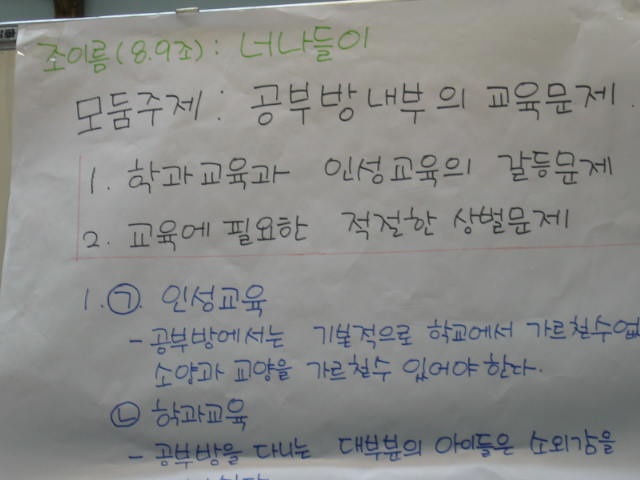 조이름(8.9조): 너나들이
모둠주제: 공부방내부의 교육문제.
1. 학과교육과 인성교육의 갈등문제
2. 교육에 필요한 적절한 상벌문제
1. ㉠. 인성교육
- 공부방에서는 기본적으로 학교에서 가르칠수없
소양과 교양을 가르칠수 있어야 한다.
㉡ 학과교육
- 공부방을 다니는 대부분의 아이들은 소외감을